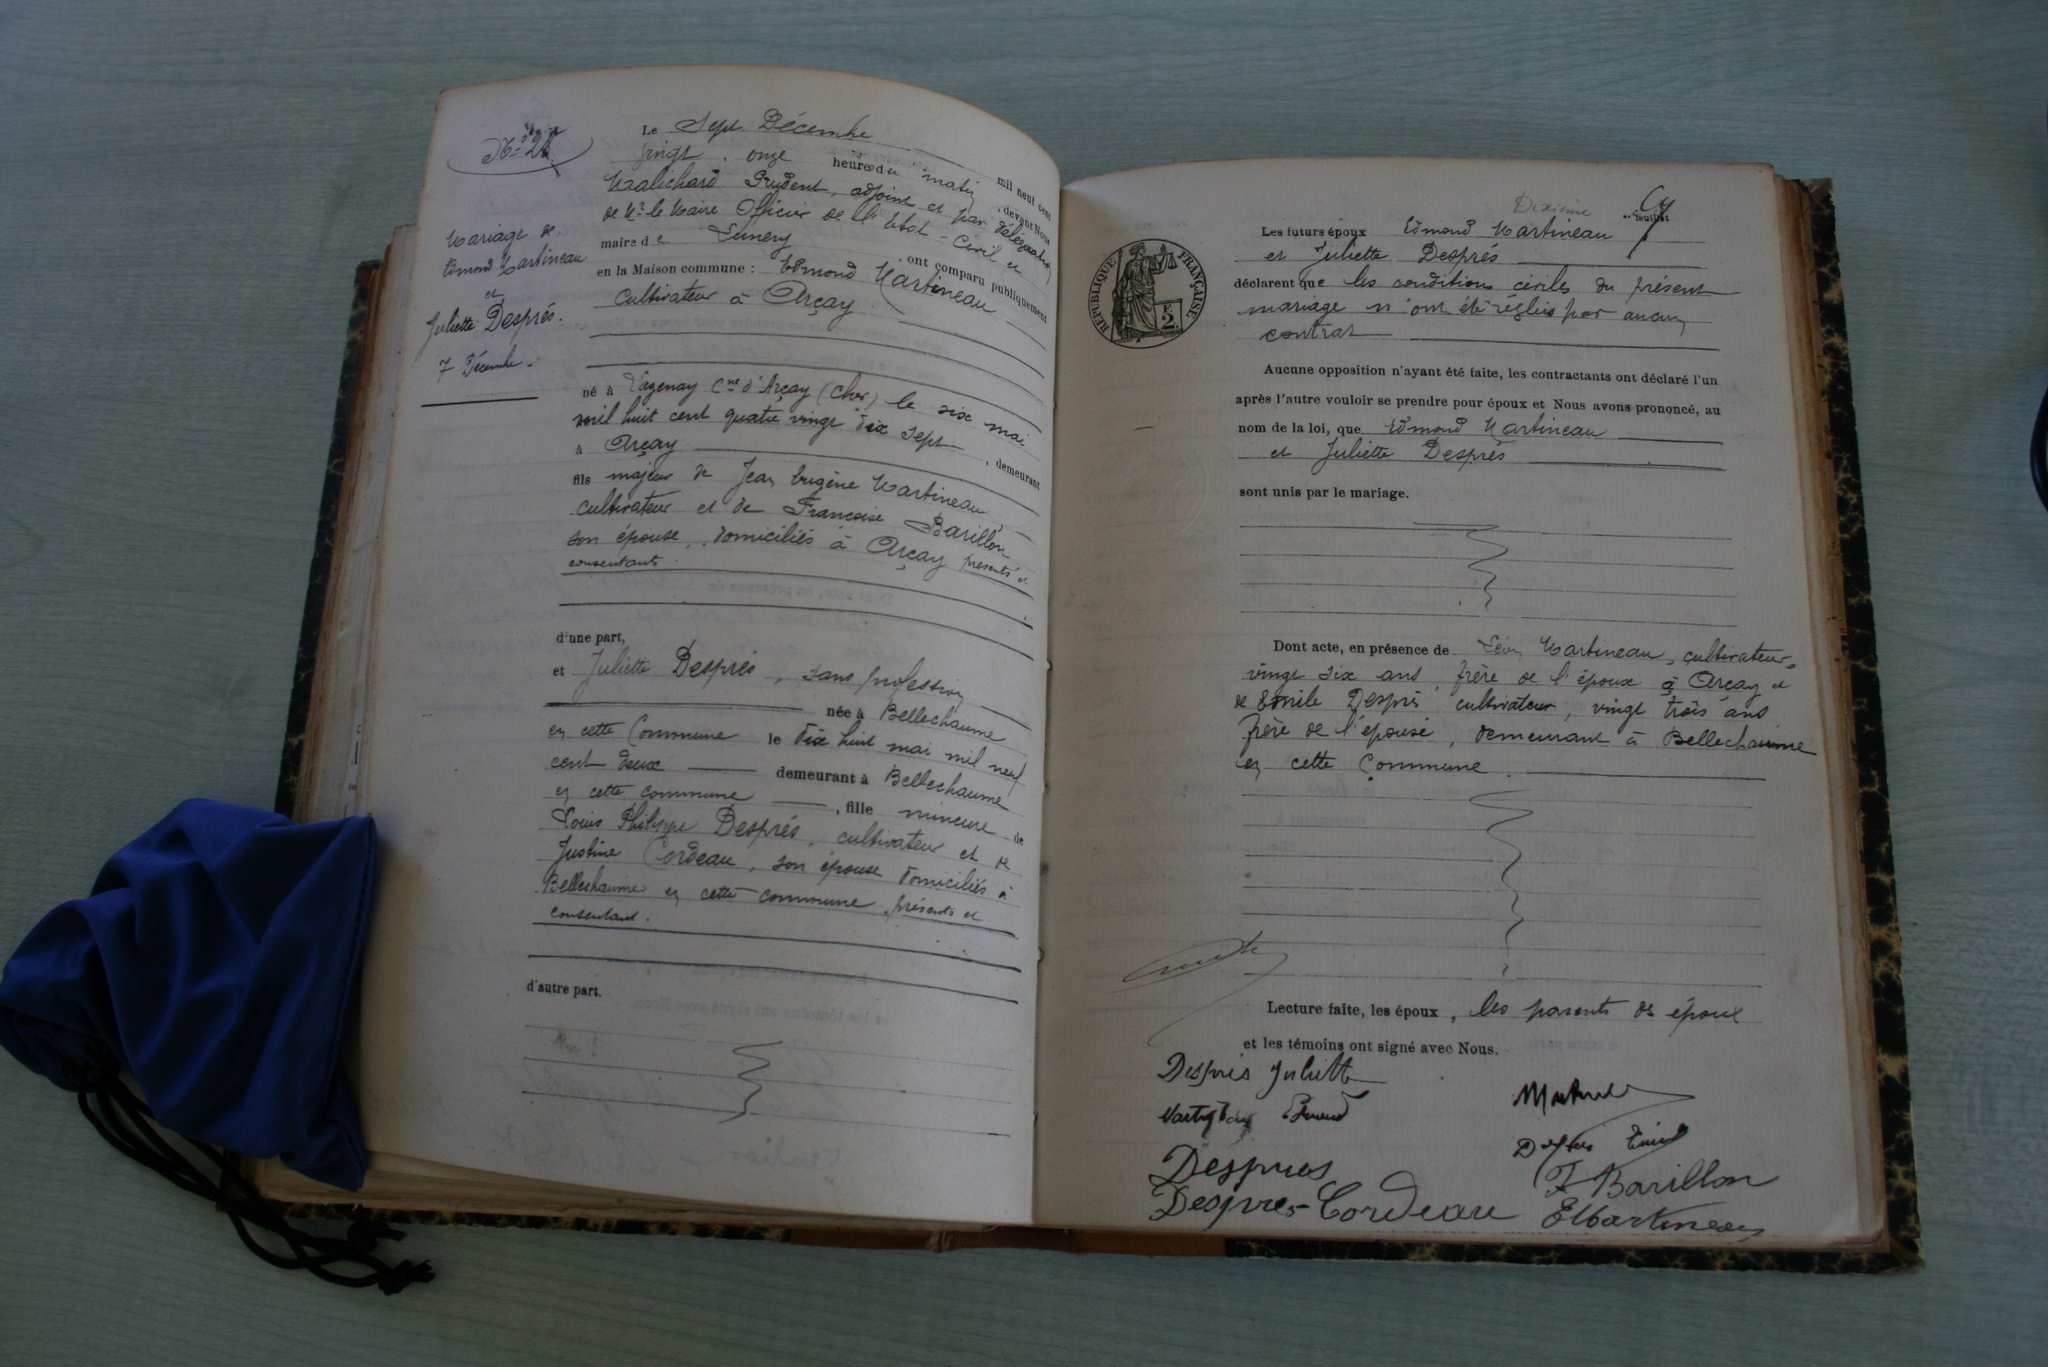 Le Sept Décembre mil neuf cent
vingt, onze heures du matin, devant Nous
Malichard Prudent, adjoint et par délégation
de Mr le Maire Officier de l'Etat-Civil et
maire de Lunery, ont comparu publiquement
en la Maison commune : Edmond Martineau
cultivateur à Arçay
Mariage de
Edmond Martineau
et
Juliette Després.
7 Décembre.
né à Vazenay Cne d'Arçay (Cher) le six mai
mil huit cent quatre vingt dix sept, demeurant
à Arçay
fils majeur de Jean Eugène Martineau,
cultivateur et de Françoise Barillon
son épouse, domiciliés à Arçay présents et
consentants.
d'une part,
et Juliette Després, sans profession
née à Bellechaume
en cette Commune le dix huit mai mil neuf
cent deux demeurant à Bellechaume
en cette commune, fille mineure de
Louis Philippe Després, cultivateur et de
Justine Cordeau, son épouse domiciliés à
Bellechaume en cette commune, présents et
consentant.
d'autre part.
Dixième feuillet
RÉPUBLIQUE FRANÇAISE
2F
Les futurs époux Edmond Martineau
et Juliette Després
déclarent que les conditions civiles du présent
mariage n'ont été réglées par aucun
contrat
Aucune opposition n'ayant été faite, les contractants ont déclaré l'un
après l'autre vouloir se prendre pour époux et Nous avons prononcé, au
nom de la loi, que Edmond Martineau
et Juliette Després
sont unis par le mariage.
Dont acte, en présence de Léon Martineau, cultivateur,
vingt six ans, frère de l'époux à Arçay et
de Emile Després cultivateur, vingt trois ans
frère de l'épouse, demeurant à Bellechaume
en cette Commune.
Lecture faite, les époux, les parents des époux
et les témoins ont signé avec Nous.
Després Juliette
Martineau Edmond
Després Emile
Despres
F Barillon
Despres-Cordeau
E Martineau